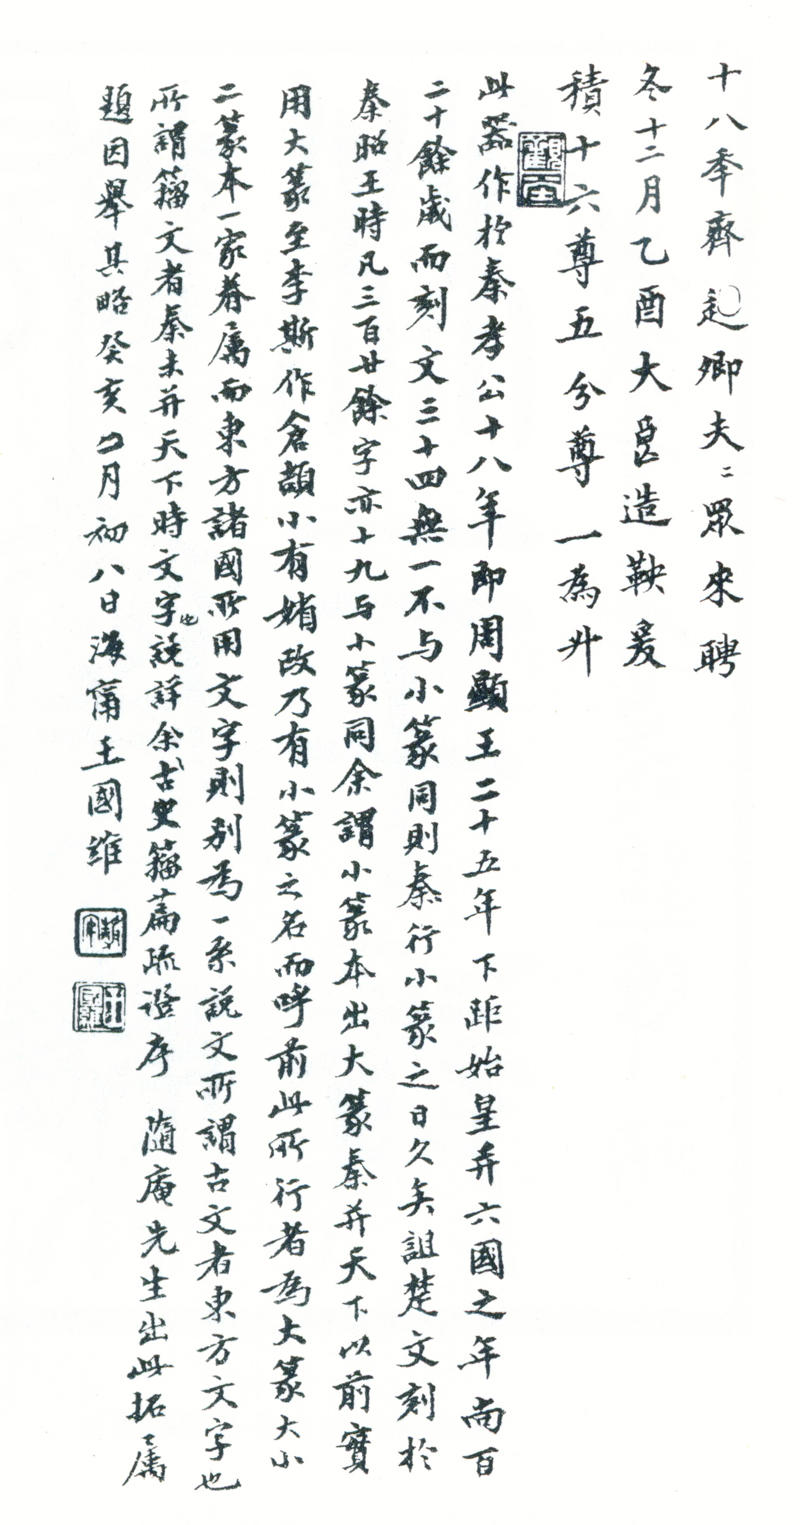 十八年齊遣卿大夫=眾來聘
冬十二月乙酉大良造鞅爰
積十六尊五分尊一為升
此器作於秦孝公十八年即周顯王二十五年下距始皇并六國之年尚百
二十餘歲而刻文三十四無一不与小篆同則秦行小篆之日久矣詛楚文刻於
秦昭王時凡三百廿餘字亦十九与小篆同余謂小篆本出大篆秦并天下以前實
用大篆至李斯作倉頡小有省改乃有小篆之名而呼前此所行者為大篆大小
二篆本一家眷属而東方諸國所用文字則別為一系說文所謂古文者東方文字也
所謂籀文者秦未并天下時文字也說詳余古史籀篇疏證序 隨庵先生出此拓属
題因舉其略癸亥四月初八日海甯王國維
觀堂
靜安
王國維